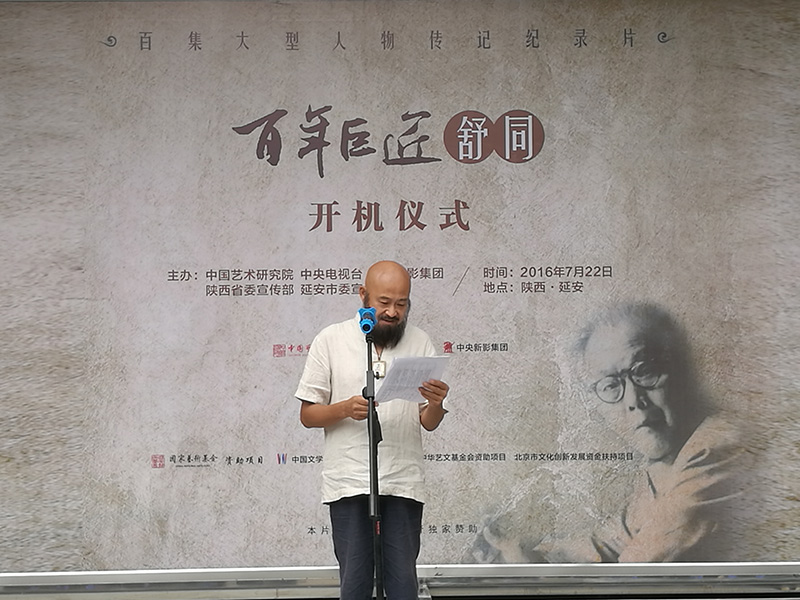 百集大型人物传记纪录片
百年巨匠 舒同
开机仪式
主办：中国艺术研究院 中央电视台 影集团
陕西省委宣传部 延安市委宣
时间：2016年7月22日
地点：陕西·延安
中国
中央新影集团
国家艺术基金 资助项目 中国文学 中华艺文基金会资助项目 北京市文化创新发展资金扶持项目
本片 独家赞助